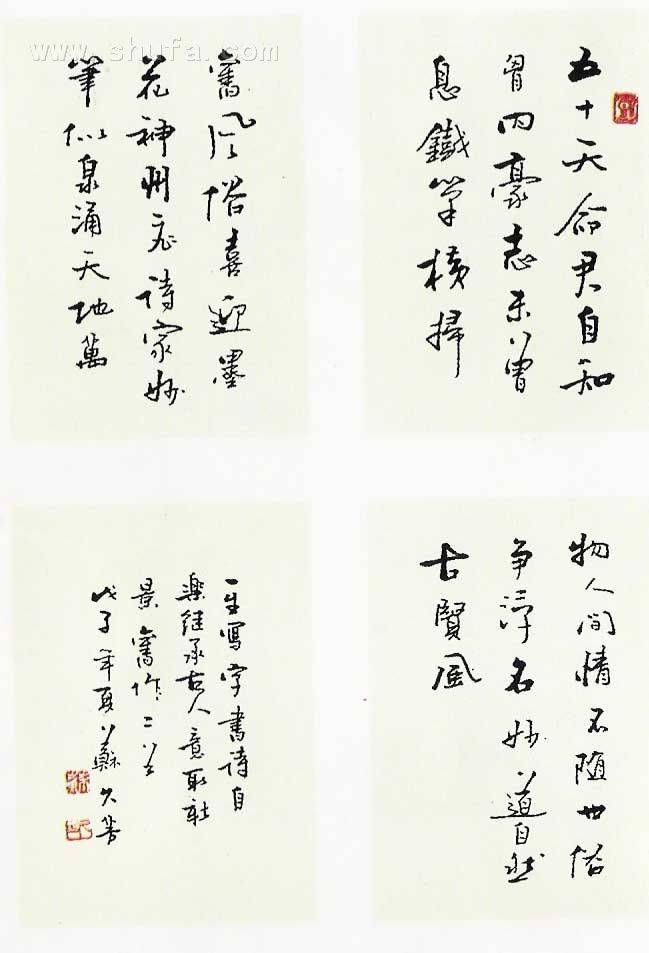 www.shufa.com
五十天命君自知
内豪志未曾
息鐵筆横掃
舊風俗喜迎墨
花神州詩家妙
筆似泉涌天地萬
物人間情不随世俗
争浮名妙道自然
古賢風
一生寫字書詩自
樂継承古人意取
景舊作二首
戊子年夏蘇